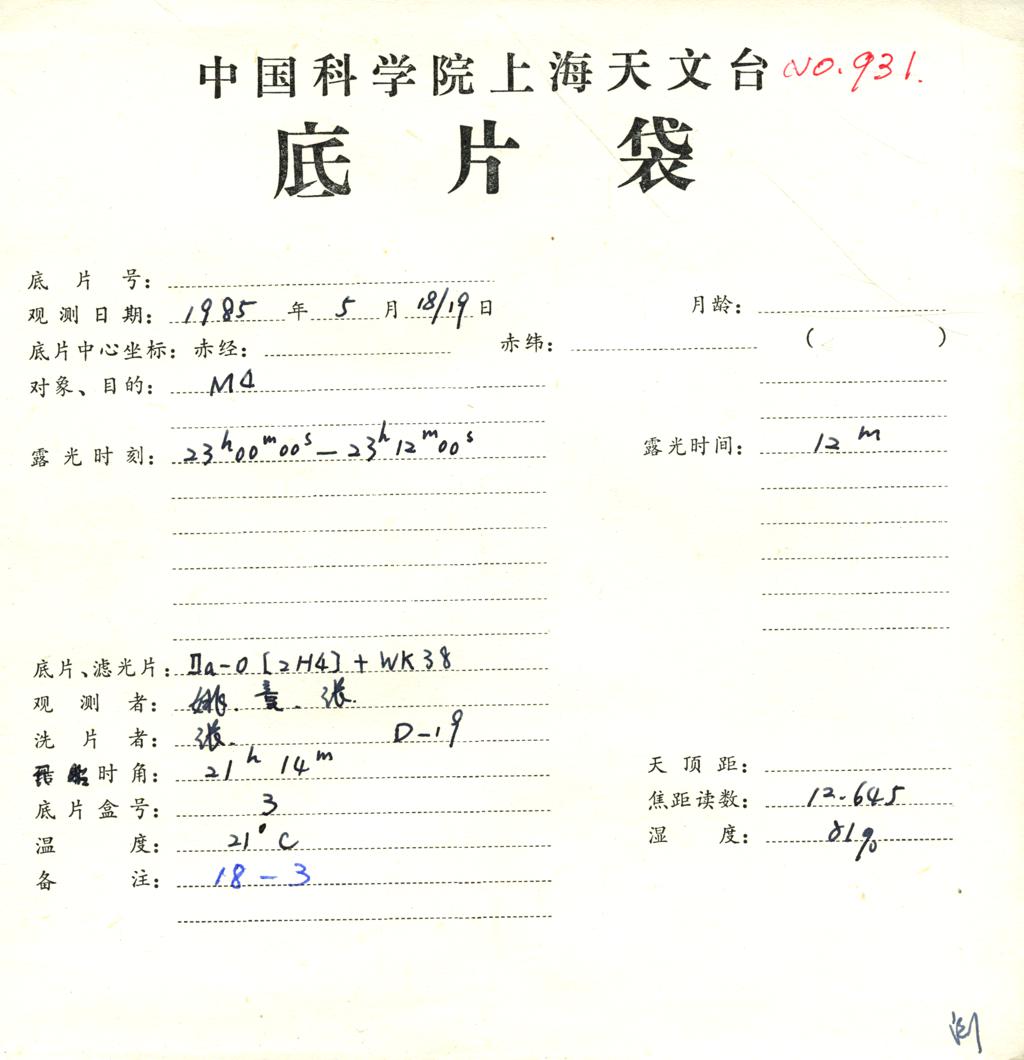 中国科学院上海天文台 NO.931.
底片袋
底片号：
观测日期：1985年5月18/19日 月龄：
底片中心坐标：赤经： 赤纬： ( )
对象、目的：M4
露光时刻：23h00m00s—23h12m00s 露光时间：12m
底片、滤光片：IIa-O [2H4] + WK38
观测者：姚. 张.
洗片者：张. D-19
时角：21h 14m 天顶距：
底片盒号：3 焦距读数：12.645
温度：21°C 湿度：81%
备注：18-3